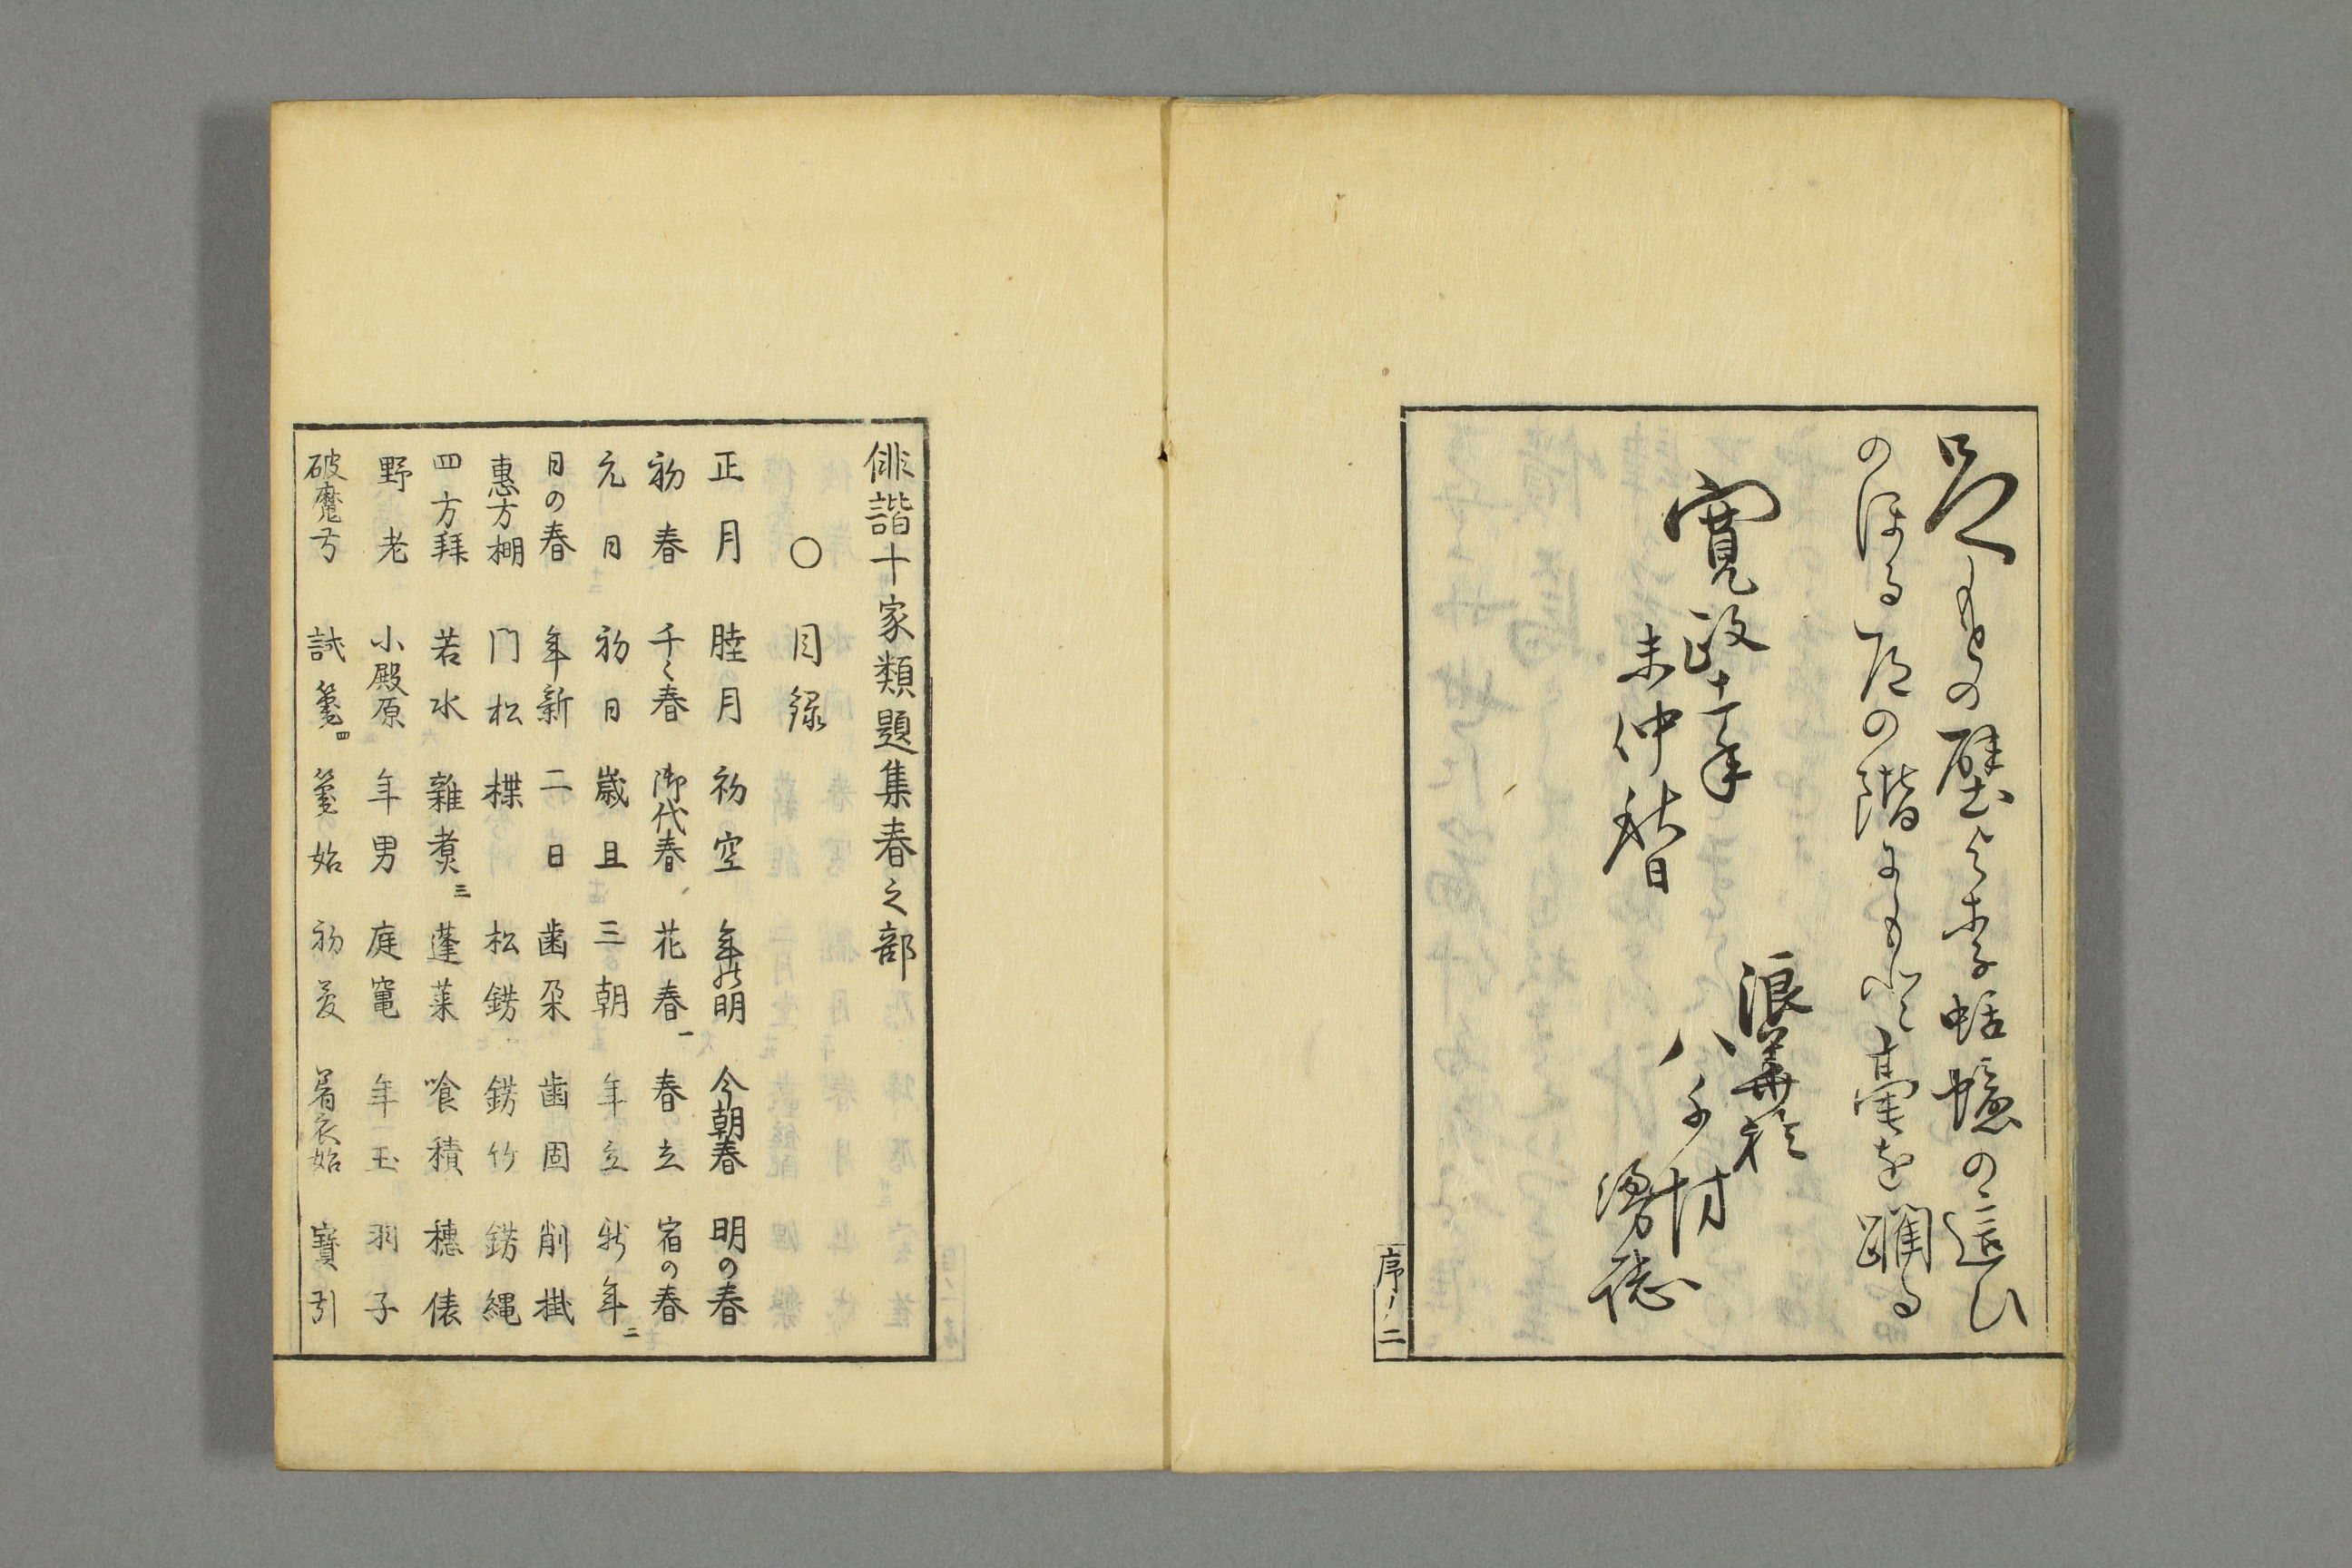 のほる
の階にも
寛政十一年
未仲秋日
浪華
八千坊
序ノ二
俳諧十家類題集春之部
〇目録
正月 睦月 初空 年の明 今朝春 明の春
初春 千〻春 御代春 花春一 春立 宿の春
元日 初日 歳旦 三朝 年立 新年二
日の春 年新 二日 歯朶 歯固 削掛
惠方棚 门松 楪 松錺 錺竹 錺縄
四方拜 若水 雜煮三 蓬莱 喰積 穗俵
野老 小殿原 年男 庭竃 年玉 羽子
破魔弓 試筆四 筆始 初夢 着衣始 寶引